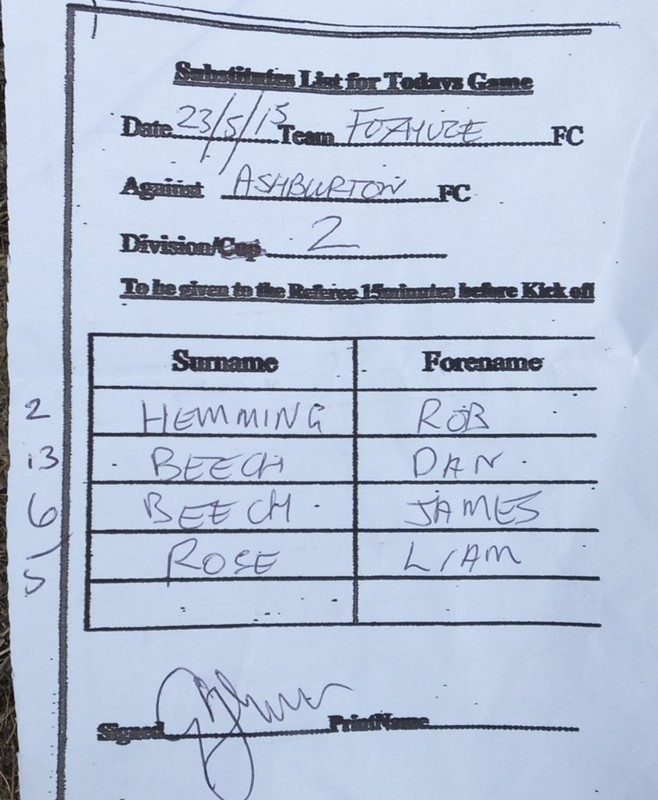 Substitutes List for Todays Game
Date 23/5/15 Team FOXHOLE FC
Against ASHBURTON FC
Division/Cup 2
To be given to the Referee 15minutes before Kick off
Surname Forename
2 HEMMING ROB
13 BEECH DAN
6 BEECH JAMES
5 ROSE LIAM
Signed PrintName